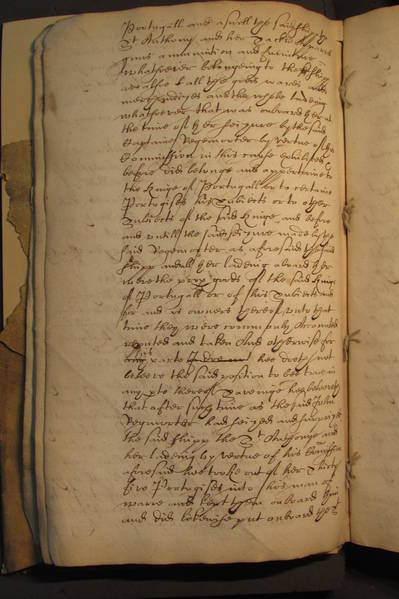 Portugall and aswell the said shipp
St Anthony and her tackle apparell
guns ammunition and furniture
whatsoever belongeing to the shipp
as also all the goods wares and
merchandizes and the whole ladeing
whatsoever that was onboard her at
the time of her seizure by the said
Captaine Regemorter by vertue of his
Commission in this cause exhibited
before did belonge and appertaine to
the Kinge of Portugall or to certaine
Portugises his subiects or to other
subiects of the said Kinge and before
and untill the said seizure made by the
said Regemorter as aforesaid the said
shipp and all her ladeing aboard her
were the goods of the said Kinge
of Portugall or of his subiects and
for and as owners thereof unto that
time they were commonly accounted
reputed and taken And otherwise for
his parte hee doth not
beleeve the said position to be true in
any parte thereof saveinge hee beleeveth
that after such time as the said John
Regemorter had seized and surprized
the said shipp the St Anthonye and
her ladeing by vertue of his Commission
aforesaid hee tooke out of her thirty
two Portugises into his man of
warre and kept them onboard him
and did likewise put onboard the